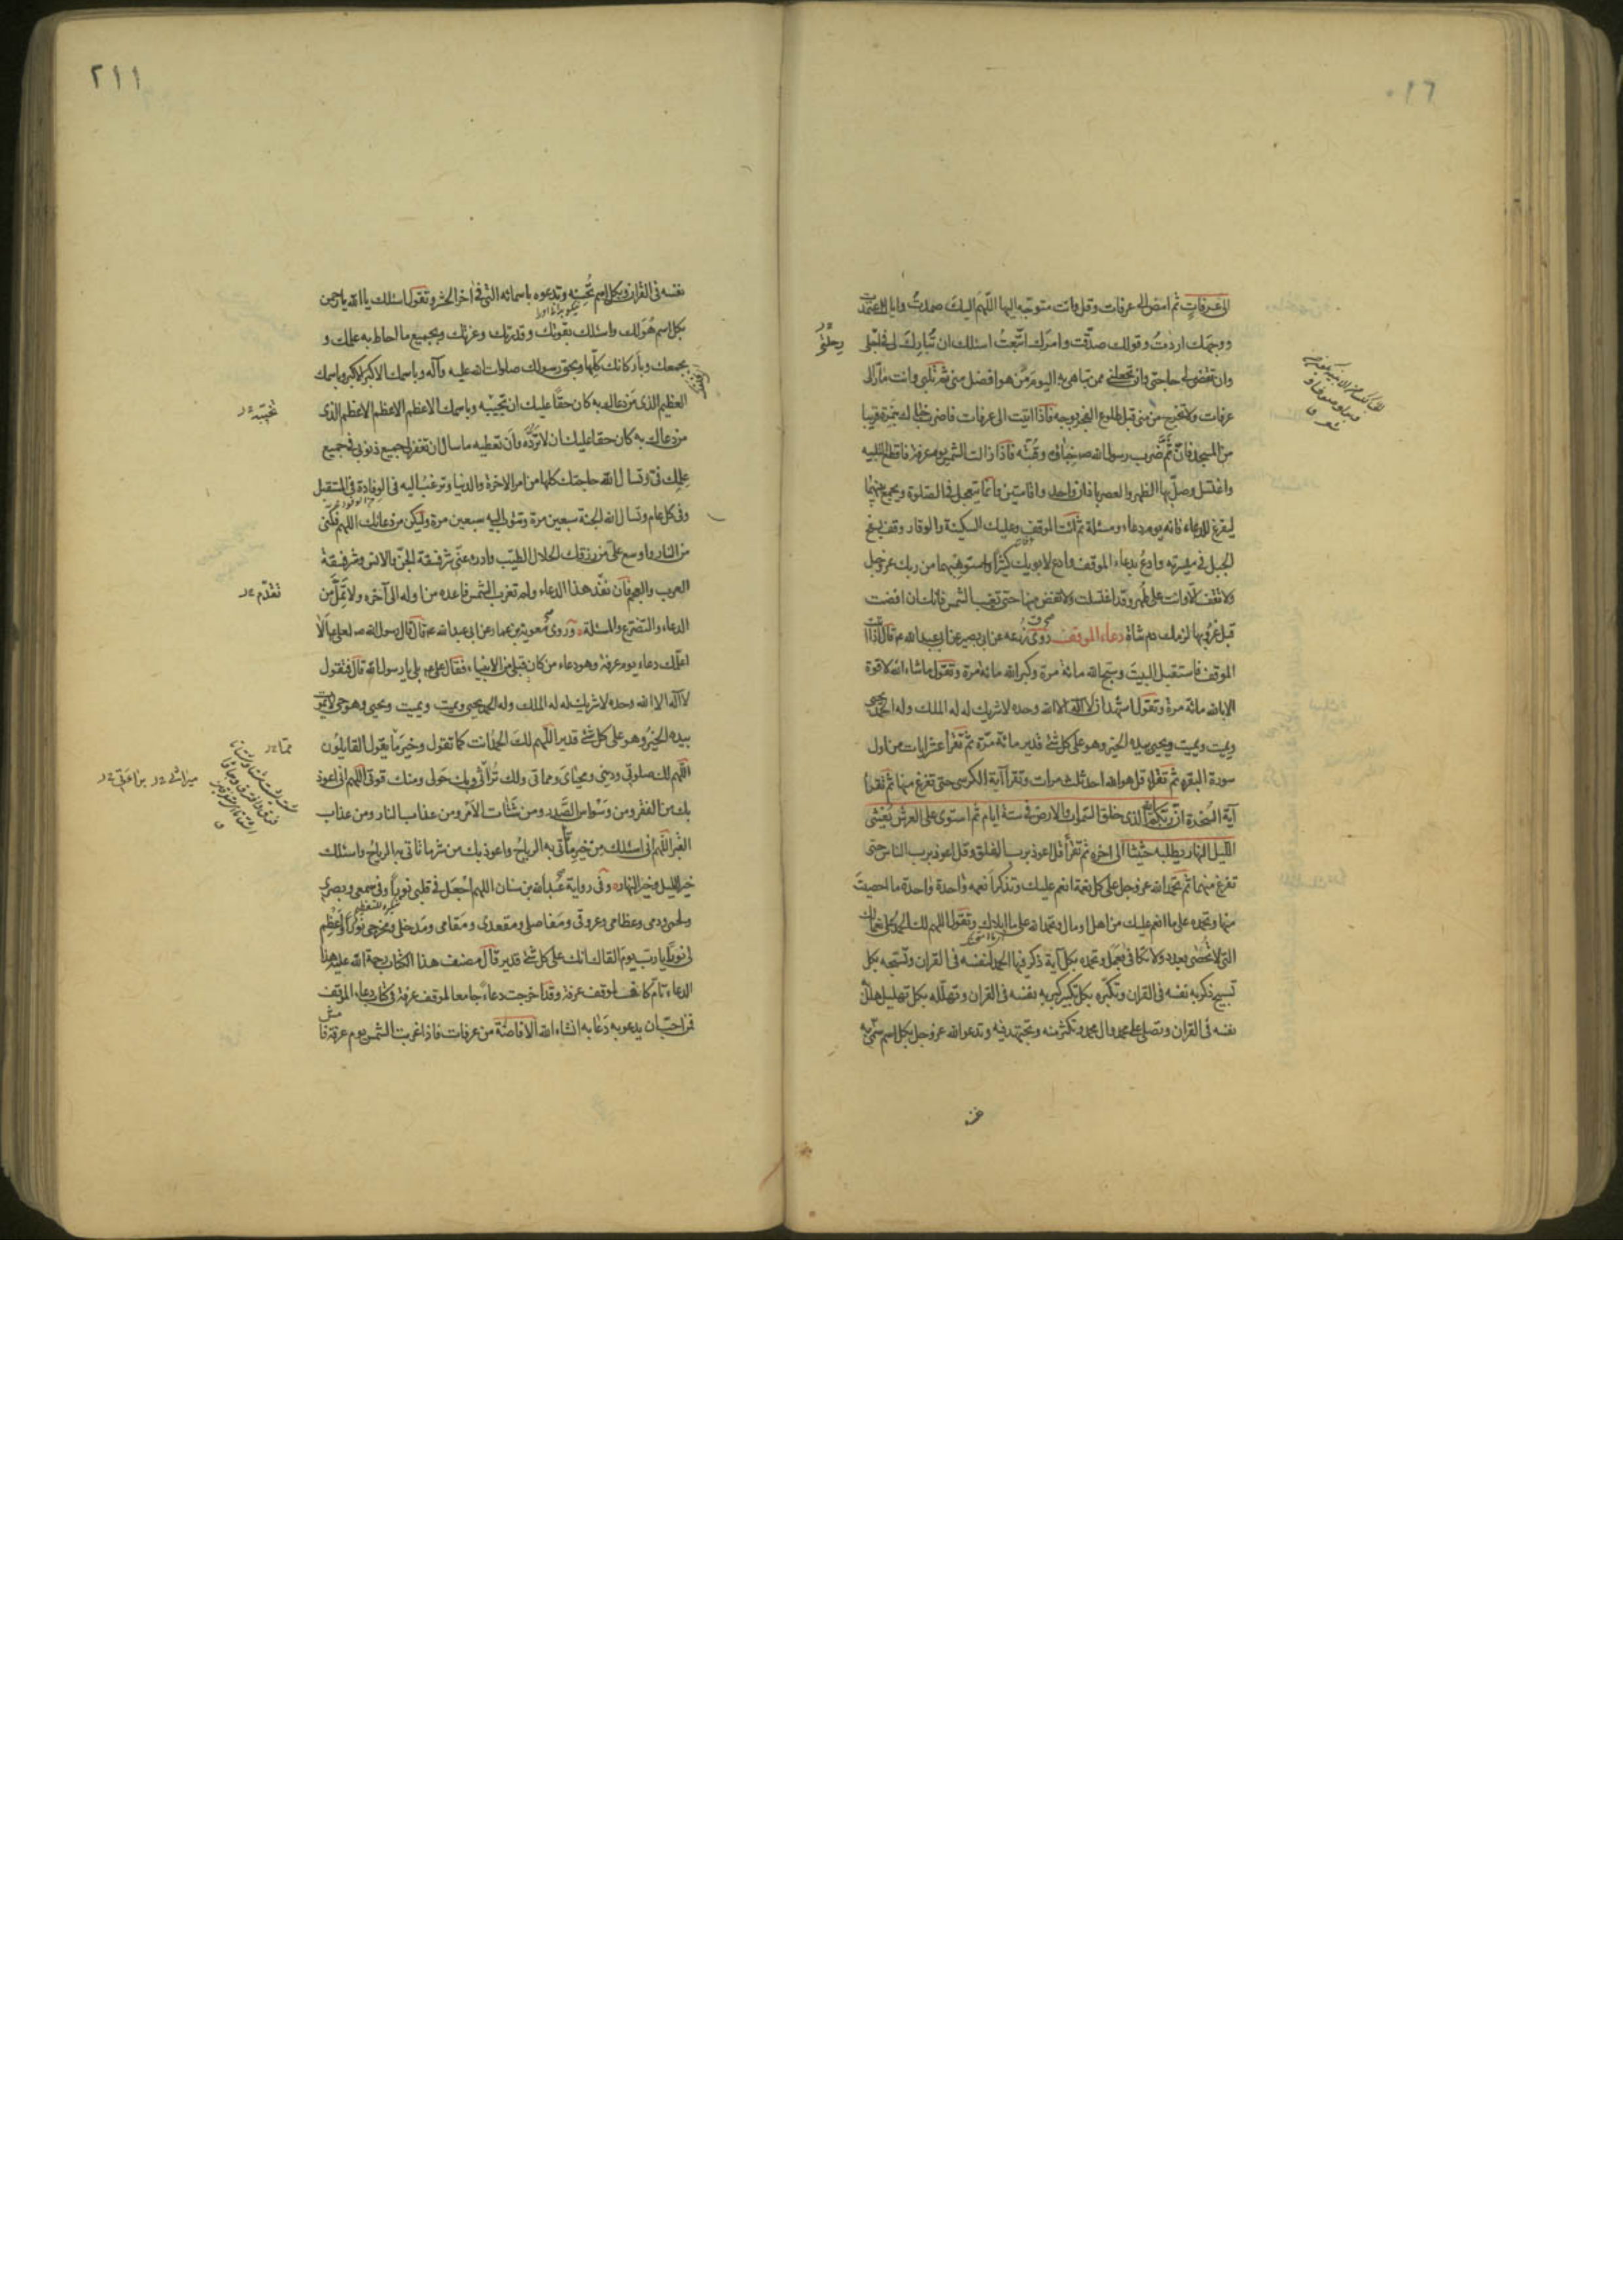 ٢١٠
الى عرفات ثم امض الى عرفات وقل وانت متوجه اليها اللهم اليك صمدت واياك اعتمدت
ووجهك اردت وقولك صدقت وامرك اتبعت اسئلك ان تبارك لى فى اجلى
رحلتى
وان تقضى لى حاجتى وان تجعلنى ممن تباهى به اليوم من هو افضل منى ثم تلبى وانت مار الى
عرفات ولا تخرج من منى قبل طلوع الفجر بوجه فاذا اتيت الى عرفات فاضرب خباك بنمرة قريبا
من المسجد فان ثم ضرب رسول الله ص خباؤه وقبته فاذا زالت الشمس يوم عرفة فاقطع التلبية
واغتسل وصل بها الظهر والعصر باذان واحد واقامتين وانما تتعجل فى الصلوة وتجمع بينهما
ليفرغ للدعاء فانه يوم دعاء ومسئلة ثم ائت الموقف وعليك السكينة والوقار وقف بسفح
الجبل فى ميسرته وادع بدعاء الموقف وادع لابويك كثيرا واستوهبهما من ربك عز وجل
ولا تقف الا وانت على طهر وقد اغتسلت ولا تفض منها حتى تغيب الشمس فانك ان افضت
قبل غروبها لزمك دم شاة دعاء الموقف روى زرعة عن ابى بصير عن ابى عبد الله ع قال اذا اتيت
الموقف فاستقبل البيت وسبح الله مائة مرة وكبر الله مائة مرة وتقول ما شاء الله لا قوة
الا بالله مائة مرة وتقول اشهد ان لا اله الا الله وحده لا شريك له له الملك وله الحمد يحيى
ويميت ويميت ويحيى بيده الخير وهو على كل شئ قدير مائة مرة ثم تقرأ عشر ايات من اول
سورة البقرة ثم تقرأ قل هو الله احد ثلث مرات وتقرأ آية الكرسى حتى تفرغ منها ثم تقرأ
آية السخرة ان ربكم الله الذى خلق السموات والارض فى ستة ايام ثم استوى على العرش يغشى
الليل النهار يطلبه حثيثا الى اخره ثم تقرأ قل اعوذ برب الفلق وقل اعوذ برب الناس حتى
تفرغ منهما ثم تحمد الله عز وجل على كل نعمة انعم عليك وتذكر انعمه واحدة واحدة ما احصيت
منها وتحمده على ما انعم عليك من اهل او مال وتحمد الله على ما ابلاك وتقول اللهم لك الحمد على نعمائك
التى لا تحصى بعدد ولا تكافى بعمل وتحمده بكل آية ذكر فيها الحمد لنفسه فى القران وتسبحه بكل
تسبيح ذكر به نفسه فى القران وتكبره بكل تكبير كبر به نفسه فى القران وتهلله بكل تهليل هلل به
نفسه فى القران وتصلى على محمد وال محمد وتكثر منه وتجتهد فيه وتدعو الله عز وجل بكل اسم سمى به
٢١١
نفسه فى القران وبكل اسم تحسنه وتدعوه باسمائه التى فى اخر الحشر وتقول اسئلك يا الله يا رحمن
بكل اسم هو لك واسئلك بقوتك وقدرتك وعزتك وبجميع ما احاط به علمك و
بجمعك وباركانك كلها وبحق رسولك صلوات الله عليه وآله وباسمك الاكبر الاكبر وباسمك
العظيم الذى من دعاك به كان حقا عليك ان تجيبه وباسمك الاعظم الاعظم الاعظم الذى
من دعاك به كان حقا عليك ان لا ترده وان تعطيه ما سال ان تغفر لى جميع ذنوبى فى جميع
علمك فى وتسال الله حاجتك كلها من امر الاخرة والدنيا وترغب اليه فى الوفادة فى المستقبل
وفى كل عام وتسال الله الجنة سبعين مرة وتتوب اليه سبعين مرة وليكن من دعائك اللهم فكنى
من النار واوسع على من رزقك الحلال الطيب وادرء عنى شر فسقة الجن والانس وشر فسقة
العرب والعجم فان نفد هذا الدعاء ولم تغرب الشمس فاعده من اوله الى آخره ولا تمل من
الدعاء والتضرع والمسئلة وروى معوية بن عمار عن ابى عبد الله ع قال قال رسول الله ص لعلى ع الا
اعلمك دعاء يوم عرفة وهو دعاء من كان قبلى من الانبياء فقال على ع بلى يا رسول الله قال فتقول
لا اله الا الله وحده لا شريك له له الملك وله الحمد يحيى ويميت ويميت ويحيى وهو حى لا يموت
بيده الخير وهو على كل شئ قدير اللهم لك الحمد انت كما تقول وخير ما يقول القايلون
اللهم لك صلوتى ودينى ومحياى ومماتى ولك تراثى وبك حولى ومنك قوتى اللهم انى اعوذ
بك من الفقر ومن وسواس الصدر ومن شتات الامر ومن عذاب النار ومن عذاب
القبر اللهم انى اسئلك من خير ما تأتى به الرياح واعوذ بك من شر ما تأتى به الرياح واسئلك
خير الليل وخير النهار وفى رواية عبد الله بن سنان اللهم اجعل فى قلبى نورا وفى سمعى وبصرى
ولحمى ودمى وعظامى وعروقى ومفاصلى ومقعدى ومقامى ومدخلى ومخرجى نورا واعظم
لى نورا يا رب يوم القاك انك على كل شئ قدير قال مصنف هذا الكتاب رحمة الله عليه هذا
الدعاء تام كاف لموقف عرفة وقد اخرجت دعاء جامعا لموقف عرفة فى كتاب دعاء الموقف
فمن احب ان يدعو به دعا به انشاء الله الافاضة من عرفات فاذا غربت الشمس يوم عرفة فا
تجيبه
تقدم